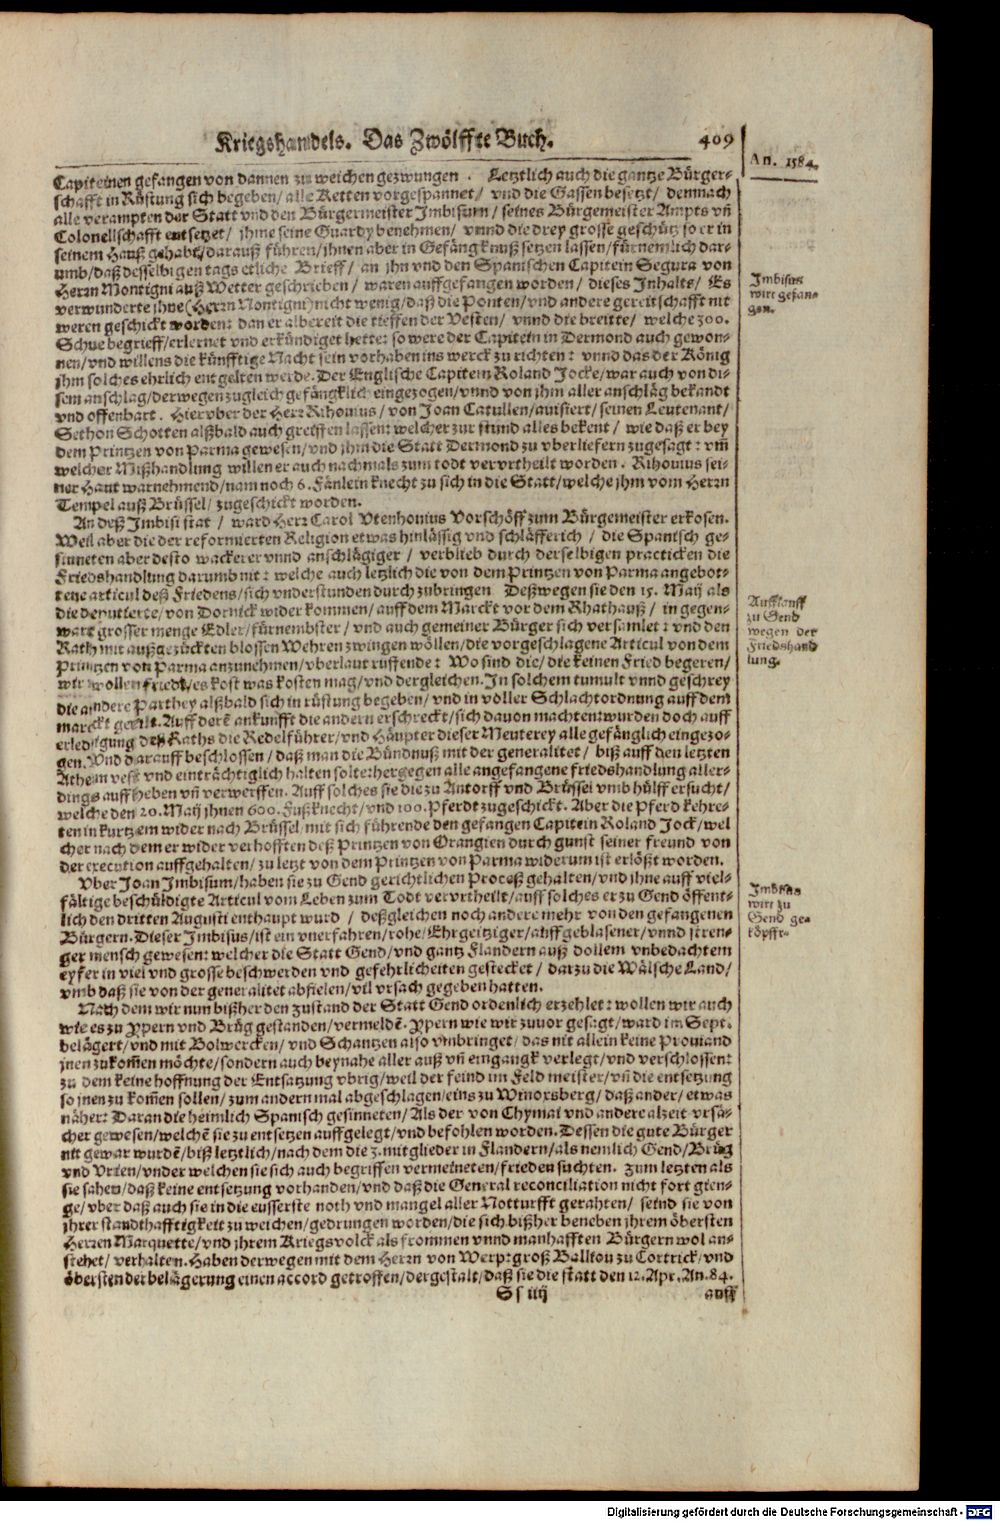 Kriegshandels. Das Zwölffte Buch. 409
An. 1584.
Capiteinen gefangen von dannen zu weichen gezwungen. Letztlich auch die gantze Bürger-
schafft in Rüstung sich begeben / alle Ketten vorgespannet / vnd die Gassen besetzt / demnach
alle verampten der Statt vnd den Bürgermeister Imbisum / seines Bürgemeister Ampts vñ
Colonellschafft entsetzet / jhme seine Guardy benehmen / vnnd die drey grosse geschütz so er in
seinem Hauß gehabt / darauß führen / jhnen aber in Gefängknuß setzen lassen / fürnemlich dar-
umb / daß desselbigen tags etliche Brieff / an jhn vnd den Spanischen Capitein Segura von
Herrn Montigni auß Wetter geschrieben / waren auffgefangen worden / dieses Inhalts / Es
verwunderte jhne (Herrn Montigni) nicht wenig / daß die Ponten / vnd andere gereitschafft nit
weren geschickt worden: dan er albereit die tieffen der Vesten / vnnd die breitte / welche 300.
Schue begrieff / erlernet vnd erkündiget hette: so were der Capitein in Dermond auch gewon-
nen / vnd willens die künfftige Nacht sein vorhaben ins werck zu richten: vnnd das der König
jhm solches ehrlich entgelten werde. Der Englische Capitein Roland Jocke / war auch von di-
sem anschlag / derwegen zugleich gefängklich eingezogen / vnnd von jhm aller anschläg bekandt
vnd offenbart. Hiervber der Herr Rihouius / von Joan Catullen / auisiert / seinen Leutenant /
Sethon Schotten alßbald auch greiffen lassen: welcher zur stund alles bekent / wie daß er bey
dem Printzen von Parma gewesen / vnd jhm die Statt Dermond zu vberliefern zugesagt: vm̃
welcher Mißhandlung willen er auch nachmals zum todt vervrtheilt worden. Rihouius sei-
ner Haut warnehmend / nam noch 6. Fänlein knecht zu sich in die Statt / welche jhm vom Herrn
Tempel auß Brüssel / zugeschickt worden.
An deß Imbisi stat / ward Herr Carol Vtenhouius Vorschöff zum Bürgemeister erkosen.
Weil aber die der reformierten Religion etwas hinlässig vnd schläfferich / die Spanisch ge-
sinneten aber desto wackerer vnnd anschlägiger / verblieb durch derselbigen practicken die
Friedshandlung darumb nit: welche auch letzlich die von dem Printzen von Parma angebot-
tene articul deß Friedens / sich vnderstunden durch zubringen. Deßwegen sie den 15. Maij als
die deputierte / von Dornick wider kommen / auff dem Marckt vor dem Rhathauß / in gegen-
wart grosser menge Edler / fürnembster / vnd auch gemeiner Bürger sich versamlet: vnd den
Rath mit außgezückten blossen Wehren zwingen wöllen / die vorgeschlagene Articul von dem
Printzen von Parma anzunehmen / vberlaut ruffende: Wo sind die / die keinen Fried begeren /
wir wollen friedt / es kost was kosten mag / vnd dergleichen. In solchem tumult vnnd geschrey
die andere Parthey alßbald sich in rüstung begeben / vnd in voller Schlachtordnung auff dem
marckt geeilt. Auff derẽ ankunfft die andern erschreckt / sich dauon machten: wurden doch auff
erledigung deß Raths die Redelführer / vnd Häupter dieser Meuterey alle gefänglich eingezo-
gen. Vnd darauff beschlossen / daß man die Bündnuß mit der generalitet / biß auff den letzten
Athem vest vnd einträchtiglich halten solte: hergegen alle angefangene friedshandlung aller-
dings auff heben vñ verwerffen. Auff solches sie die zu Antorff vnd Brüssel vmb hülff ersucht /
welche den 20. Maij jhnen 600. Fußknecht / vnd 100. Pferdt zugeschickt. Aber die Pferd kehre-
ten in kurtzem wider nach Brüssel / mit sich führende den gefangen Capitein Roland Jock / wel
cher nach dem er wider verhofften deß Printzen von Orangien durch gunst seiner freund von
der execution auffgehalten / zu letzt von dem Printzen von Parma widerum ist erlößt worden.
Vber Joan Imbisum / haben sie zu Gend gerichtlichen Proceß gehalten / vnd jhne auff viel-
fältige beschüldigte Articul vom Leben zum Todt vervrtheilt / auff solches er zu Gend öffent-
lich den dritten Augusti enthaupt wurd / deßgleichen noch andere mehr von den gefangenen
Bürgern. Dieser Imbisus / ist ein vnerfahren / rohe / Ehrgeitziger / auffgeblasener / vnnd stren-
ger mensch gewesen: welcher die Statt Gend / vnd gantz Flandern auß dollem vnbedachtem
eyfer in viel vnd grosse beschwerden vnd gefehrlicheiten gestecket / darzu die Wälsche Land /
vmb daß sie von der generalitet abfielen / vil vrsach gegeben hatten.
Nach dem wir nun bißher den zustand der Statt Gend ordenlich erzehlet: wollen wir auch
wie es zu Ypern vnd Brüg gestanden / vermeldẽ. Ypern wie wir zuuor gesagt / ward im Sept.
belägert / vnd mit Bolwercken / vnd Schantzen also vmbringet / das nit allein keine Prouiand
jnen zukom̃en möchte / sondern auch beynahe aller auß vñ eingangk verlegt / vnd verschlossen:
zu dem keine hoffnung der Entsatzung vbrig / weil der feind im Feld meister / vñ die entsetzung
so jnen zu kom̃en sollen / zum andern mal abgeschlagen / eins zu Winoxsberg / daß ander / etwas
näher: Daran die heimlich Spanisch gesinneten / Als der von Chymai vnd andere alzeit vrsä-
cher gewesen / welchẽ sie zu entsetzen auffgelegt / vnd befohlen worden. Dessen die gute Bürger
nit gewar wurdẽ / biß letzlich / nach dem die 3. mitglieder in Flandern / als nemlich Gend / Brüg
vnd Vrien / vnder welchen sie sich auch begriffen vermeineten / frieden suchten. Zum letzten als
sie sahen / daß keine entsetzung vorhanden / vnd daß die General reconciliation nicht fort gien-
ge / vber daß auch sie in die eusserste noth vnd mangel aller Notturfft gerahten / seind sie von
jhrer standthafftigkeit zu weichen / gedrungen worden / die sich bißher beneben jhrem öbersten
Herren Marquette / vnd jhrem Kriegsvolck als frommen vnnd manhafften Bürgern wol an-
stehet / verhalten. Haben derwegen mit dem Herrn von Werp: groß Balliou zu Cortrick / vnd
öbersten der belägerung einen accord getroffen / dergestalt / daß sie die statt den 12. Apr. An. 84.
Ss iiij auff
Imbisus
wirt gefan-
gen.
Aufflauff
zu Gend
wegen der
Friedshand
lung.
Imbisus
wirt zu
Gend ge-
köpfft.
Digitalisierung gefördert durch die Deutsche Forschungsgemeinschaft - DFG